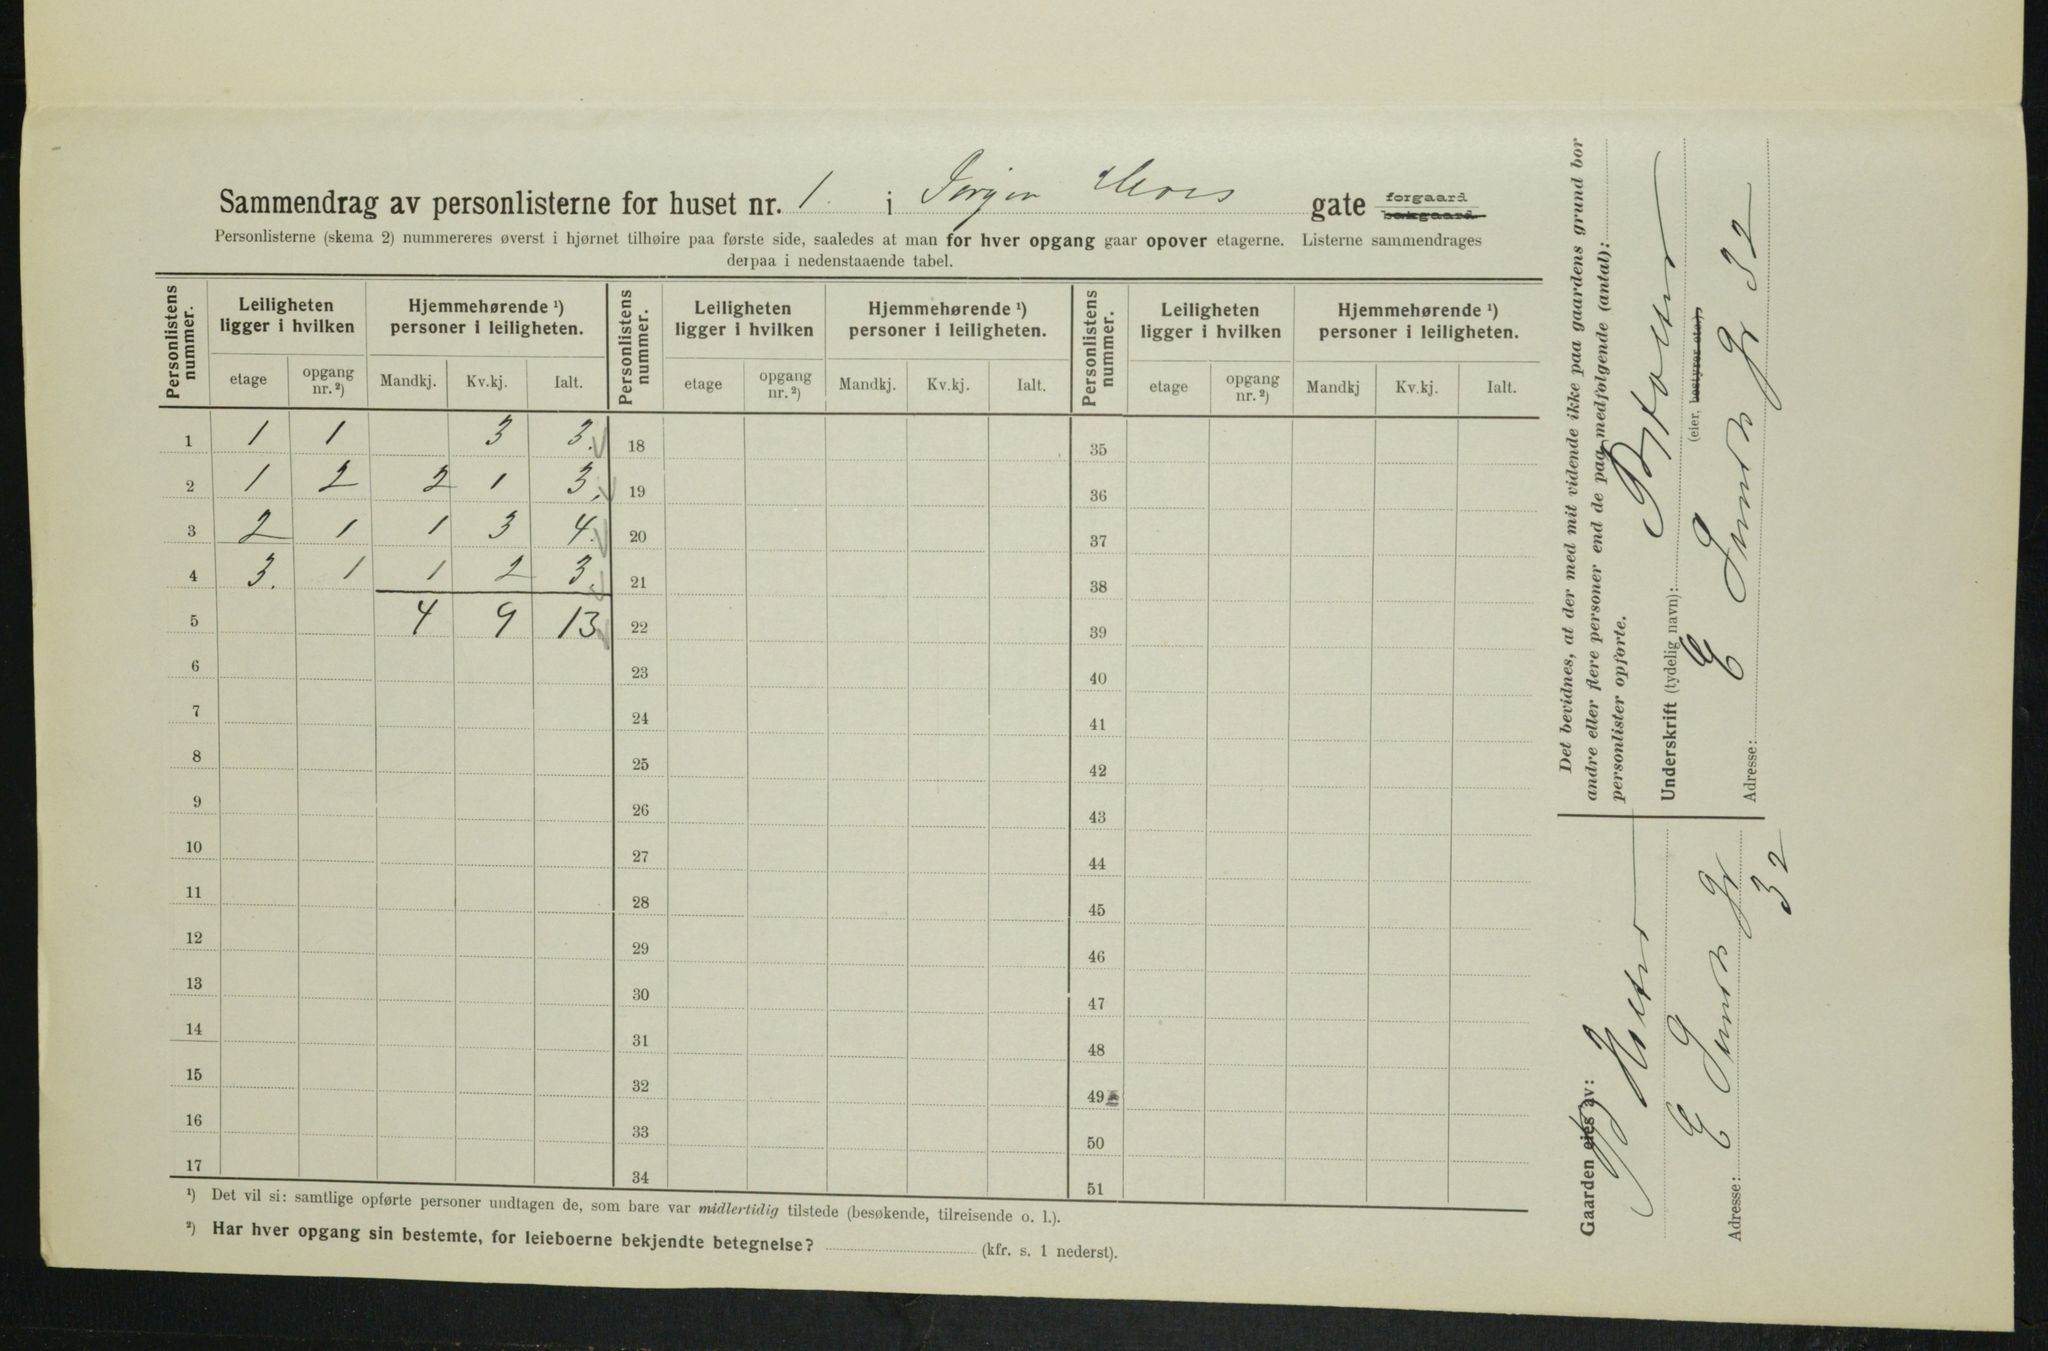 Sammendrag av personlisterne for huset nr. 1. i Jørgen Moes gate forgaard bakgaard
Personlisterne (skema 2) nummereres øverst i hjørnet tilhøire paa første side, saaledes at man for hver opgang gaar opover etagerne. Listerne sammendrages
derpaa i nedenstaaende tabel.
Personlistens nummer. Leiligheten ligger i hvilken Hjemmehørende ¹) personer i leiligheten. Personlistens nummer. Leiligheten ligger i hvilken Hjemmehørende ¹) personer i leiligheten. Personlistens nummer. Leiligheten ligger i hvilken Hjemmehørende ¹) personer i leiligheten.
etage opgang nr. ²) Mandkj. Kv.kj. Ialt. etage opgang nr. ²) Mandkj. Kv.kj. Ialt. etage opgang nr. ²) Mandkj Kv.kj. Ialt.
1 1 1 3 3. 18 35
2 1 2 2 1 3. 19 36
3 2 1 1 3 4. 20 37
4 3. 1 1 2 3. 21 38
5 4 9 13 22 39
6 23 40
7 24 41
8 25 42
9 26 43
10 27 44
11 28 45
12 29 46
13 30 47
14 31 48
15 32 49
16 33 50
17 34 51
¹) Det vil si: samtlige opførte personer undtagen de, som bare var midlertidig tilstede (besøkende, tilreisende o. l.).
²) Har hver opgang sin bestemte, for leieboerne bekjendte betegnelse? (kfr. s. 1 nederst).
Det bevidnes, at der med mit vidende ikke paa gaardens grund bor
andre eller flere personer end de paa medfølgende (antal):
personlister opførte.
Underskrift (tydelig navn):
(eier, bestyrer etc.)
Adresse: E Sunds gt 32
Gaarden eies av: Holter
Adresse: E Sunds gt
32